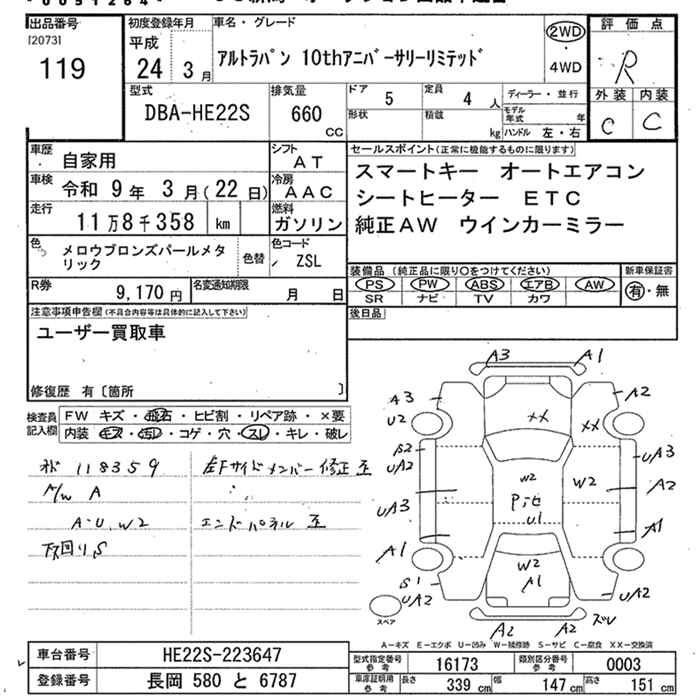 出品番号 [2073] 119
初度登録年月 平成 24年 3月
車名・グレード
アルトラパン 10thアニバーサリーリミテッド
2WD・4WD
評価点 R
外装 C 内装 C
型式 DBA-HE22S
排気量 660 CC
ドア 5 定員 4 人
形状 積載 kg
ディーラー・並行
モデル年式 年
ハンドル 左・右
車歴 自家用
シフト AT
車検 令和 9年 3月(22日)
冷房 AAC
走行 11万8千358 km
燃料 ガソリン
色 メロウブロンズパールメタリック
色替
色コード ZSL
R券 9,170円
名変通知期限 月 日
セールスポイント(正常に機能するものに限ります)
スマートキー オートエアコン
シートヒーター ETC
純正AW ウインカーミラー
装備品 (純正品に限り○をつけてください)
PS PW ABS エアB AW
SR ナビ TV カワ
新車保証書 有・無
後日品
注意事項申告欄(不具合内容等は具体的に記入して下さい)
ユーザー買取車
修復歴 有〔箇所 〕
検査員記入欄
FW キズ・飛石・ヒビ割・リペア跡・×要
内装 キズ・汚レ・コゲ・穴・スレ・キレ・破レ
118359
A/W A
A・U、W2
下回りS
左Fサイドメンバー修正
エンドパネル
A3 A1
A3 A2
U2 XX XX
S2 UA3
UA2
W2 W2 A2
UA3
U1 A1
A1
W2
S1 A1 UA2
UA2
スペア
A2 A2 ズレ
A−キズ E−エクボ U−凹み W−補修跡 S−サビ C−腐食 XX−交換済
車台番号 HE22S-223647
登録番号 長岡 580 と 6787
型式指定番号 参考 16173
類別区分番号 参考 0003
車庫証明用 参考 長さ 339 cm 幅 147 cm 高さ 151 cm